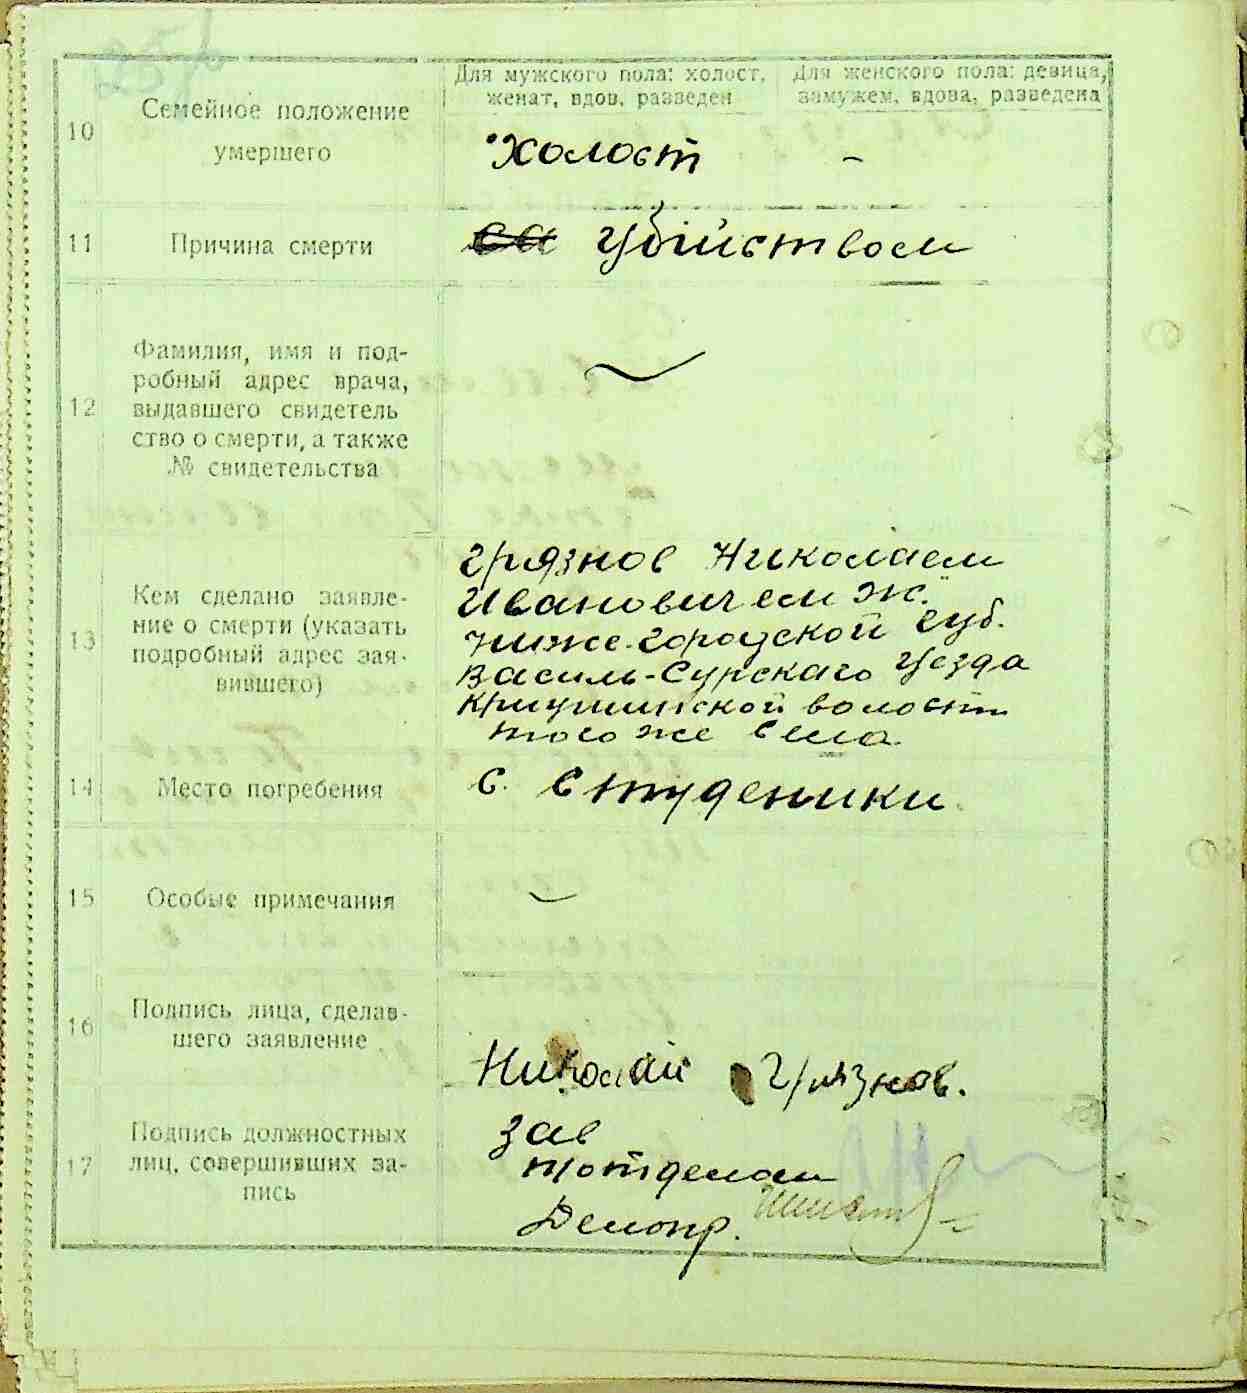 10
Семейное положение
умершего
Для мужского пола: холост,
женат, вдов, разведен
Для женского пола: девица,
замужем, вдова, разведена
холост
-
11
Причина смерти
са убийством
12
Фамилия, имя и под-
робный адрес врача,
выдавшего свидетель
ство о смерти, а также
№ свидетельства
13
Кем сделано заявле-
ние о смерти (указать
подробный адрес зая-
вившего)
Грязнов Николаем
Ивановичем Ж.
Ниже-городской губ.
Василь-Сурскаго уезда
Криушинской волости
того же села
14
Место погребения
с. Студеники.
15
Особые примечания
16
Подпись лица, сделав-
шего заявление
Николай Грязнов.
17
Подпись должностных
лиц, совершивших за-
пись
Зав
Делопр.